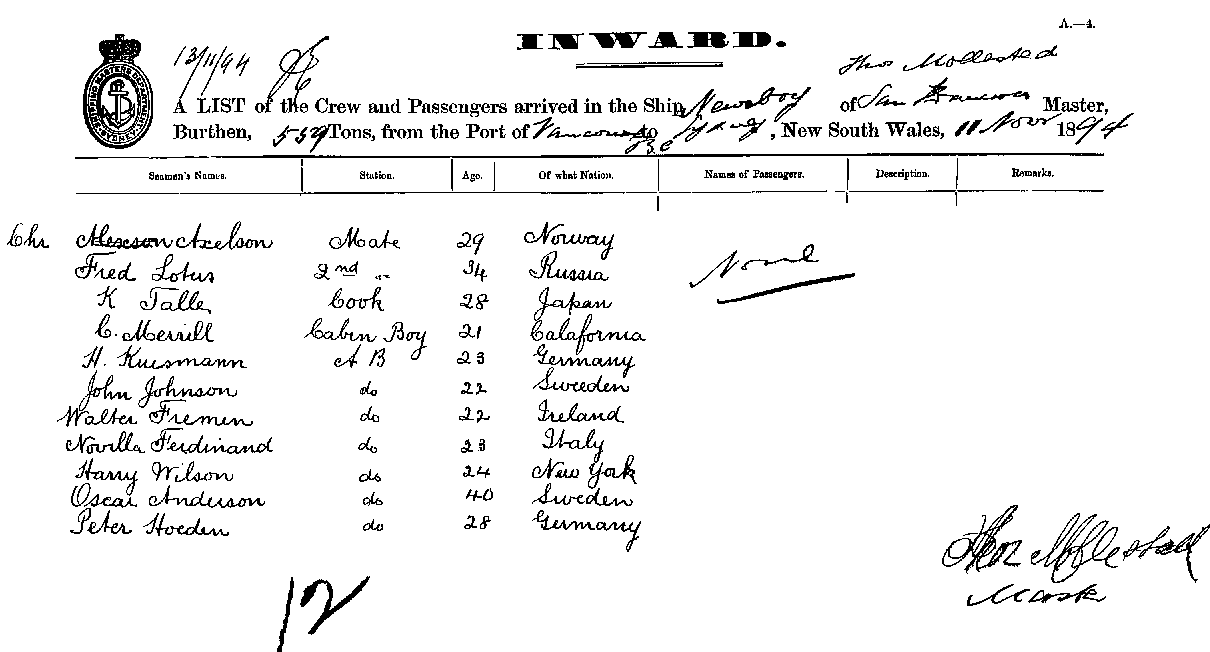 A.—4.
INWARD.
13/11/94
Thos Mollestad
A LIST of the Crew and Passengers arrived in the Ship, Newsboy of San Francisco Master,
Burthen, 559 Tons, from the Port of Vancouver BC to Sydney, New South Wales, 11 Novr 1894
Seamen's Names. Station. Age. Of what Nation. Names of Passengers. Description. Remarks.
Chr Axelson Mate 29 Norway
None
Fred Lotus 2nd „ 34 Russia
K Talle Cook 28 Japan
C. Merrill Cabin Boy 21 Calafornia
H. Kuismann A B 23 Germany
John Johnson do 22 Sweden
Walter Fremen do 22 Ireland
Novilla Ferdinand do 23 Italy
Harry Wilson do 24 New York
Oscar Anderson do 40 Sweden
Peter Hoeden do 28 Germany
Thos Mollestad
12